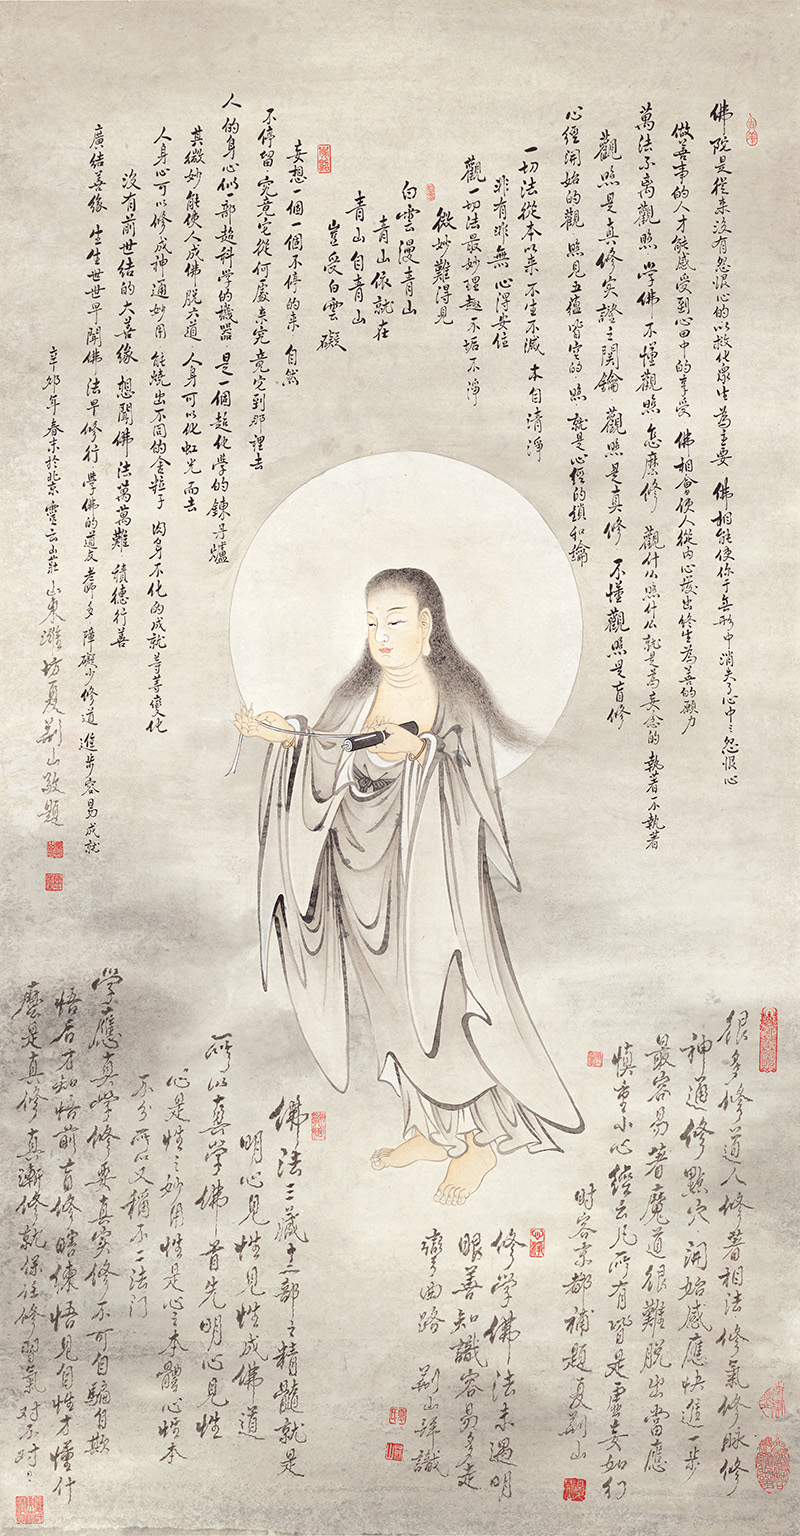 佛院是從来沒有怨恨心的以救化眾生為主要 佛相能使你于無形中消失了心中之怨恨心
做善事的人才能感受到心田中的享受 佛相會使人從內心發出終生為善的願力
萬法不离觀照 学佛不懂觀照 怎麼修 觀什么照什么就是為妄念的執著不執著
觀照是真修实證之関鑰 觀照是真修 不懂觀照是盲修
心經開始的觀 照見五蘊皆空的照 就是心經的鎖和鑰
一切法從本以来不生不滅 本自清淨
非有非無心得安位
觀一切法最妙理趣不垢不淨
微妙難得見
白雲漫青山
青山依就在
青山自青山
豈受白雲礙
妄想一個一個不停的来 自然
不停留 究竟它從何處来究竟它到那裡去
人的身心似一部超科學的機器 是一個超化學的鍊丹爐
其微妙能使人成佛脫六道 人身可以化虹光而去
人身心可以修成神通妙用 能燒出不同的舍粒子 肉身不化的成就等等變化
沒有前世結的大善緣 想聞佛法萬萬難 積德行善
廣结善缘 生生世世早聞佛法早修行 學佛的道友老師多 障礙少修道 進步容易成就
辛卯年春末於北京靈云山莊 山東濰坊夏荆山敬題
很多修道人修著相法修氣修脉修
神通修點穴 開始感應快進一步
最容易著魔道很難脫出當應
慎重小心 經云凡所有皆是虛妄如幻
时客京都補題夏荆山
修学佛法未遇明
眼善知識容易多走
彎曲路 荆山拜識
佛法三藏十二部之精髓就是
明心見性見性成佛道
所以真学佛首先明心見性
心是性之妙用性是心之本體心性本
不分所以又稱不二法门
学應真学修要真实修不可自騙自欺
悟后才知悟前盲修瞎練悟見自性才懂什
麼是真修真漸修就保任修習氣对不对